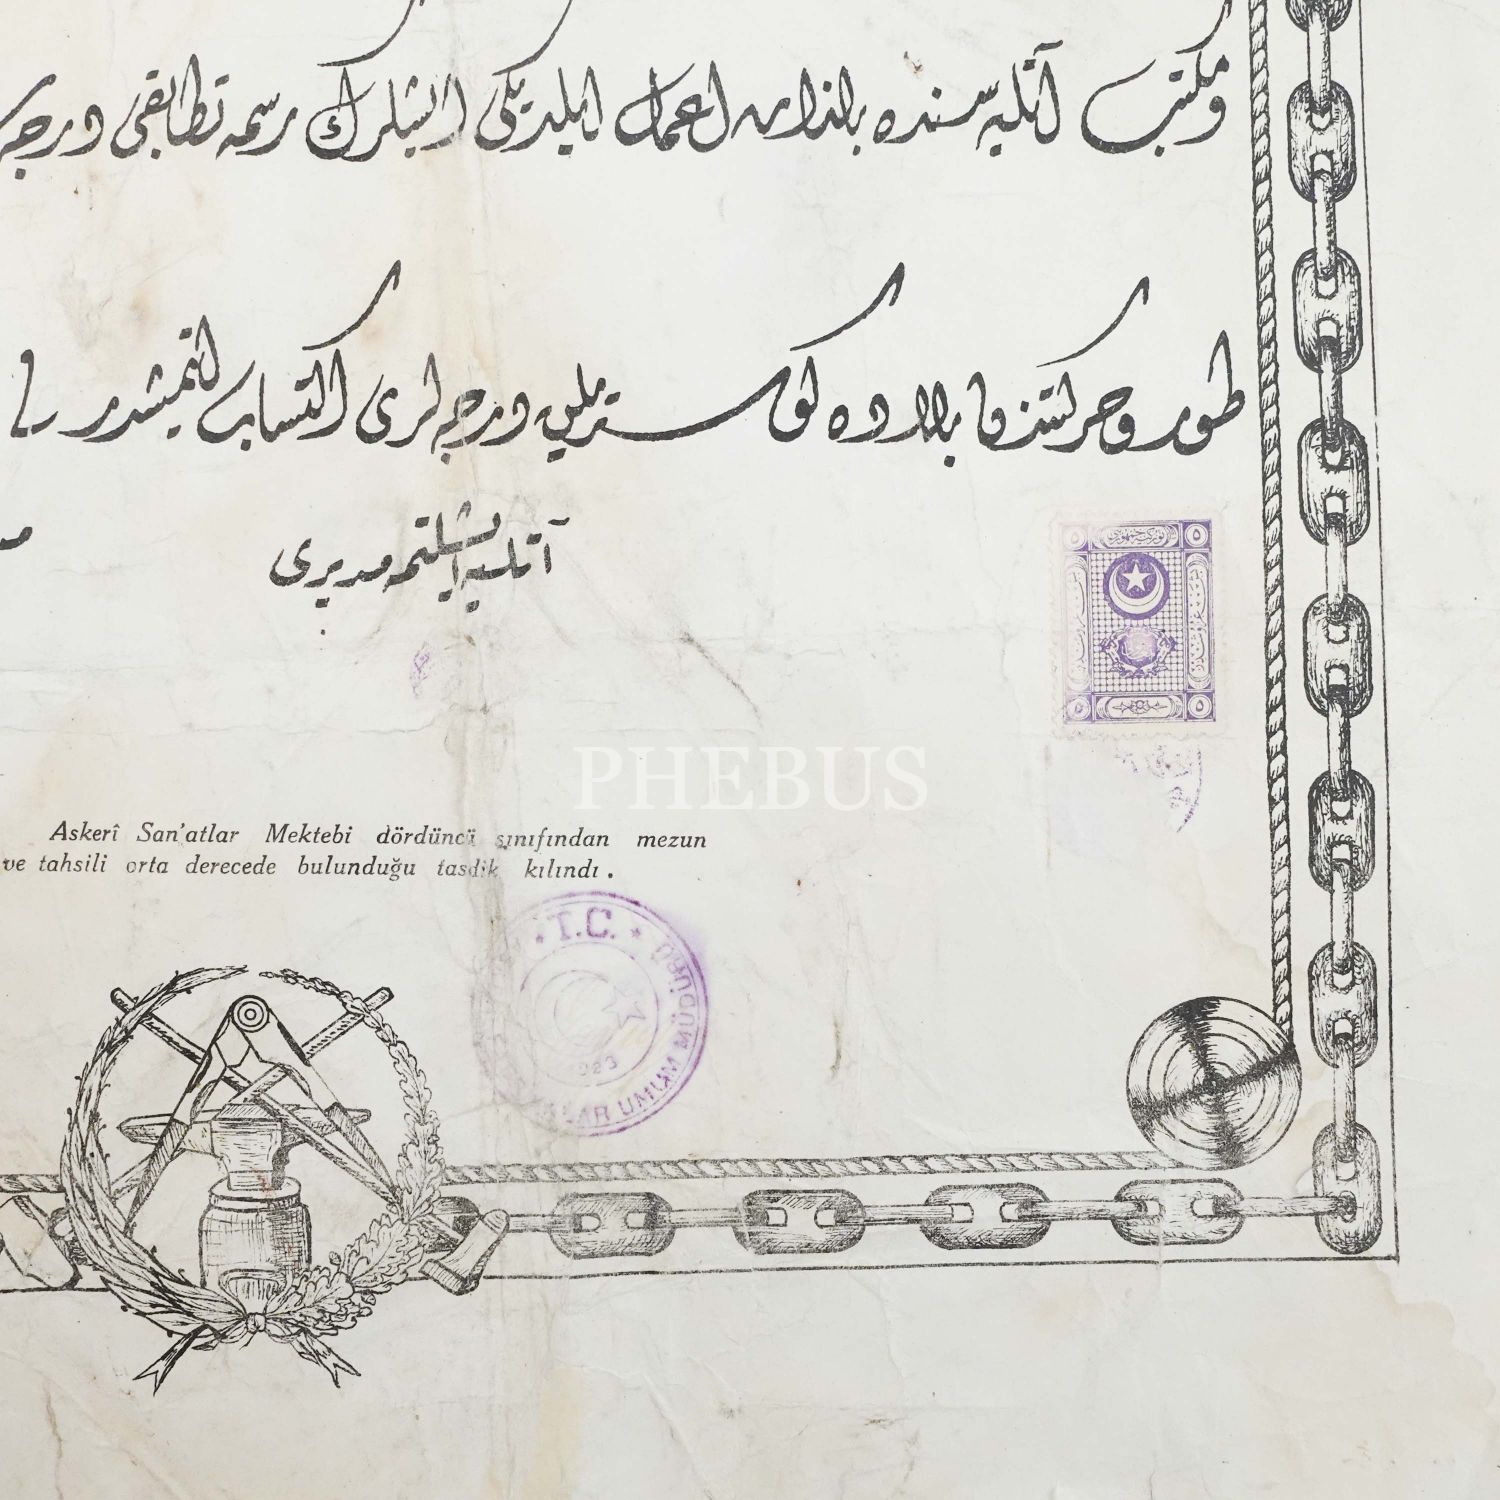 ومكتب آتليه سنده بالذات اعمال ايلديكى ايشلرك رسمه تطابقى درجه
طور وحركتنده بالاده كوستريلن درجه لرى اكتساب ايتمشدر
آتليه ايشلتمه مديرى
توركيه جمهوريتى
٥ ٥
٥ ٥
PHEBUS
Askerî San'atlar Mektebi dördüncü sınıfından mezun
ve tahsili orta derecede bulunduğu tasdik kılındı.
T.C.
UMUM MÜDÜRÜ